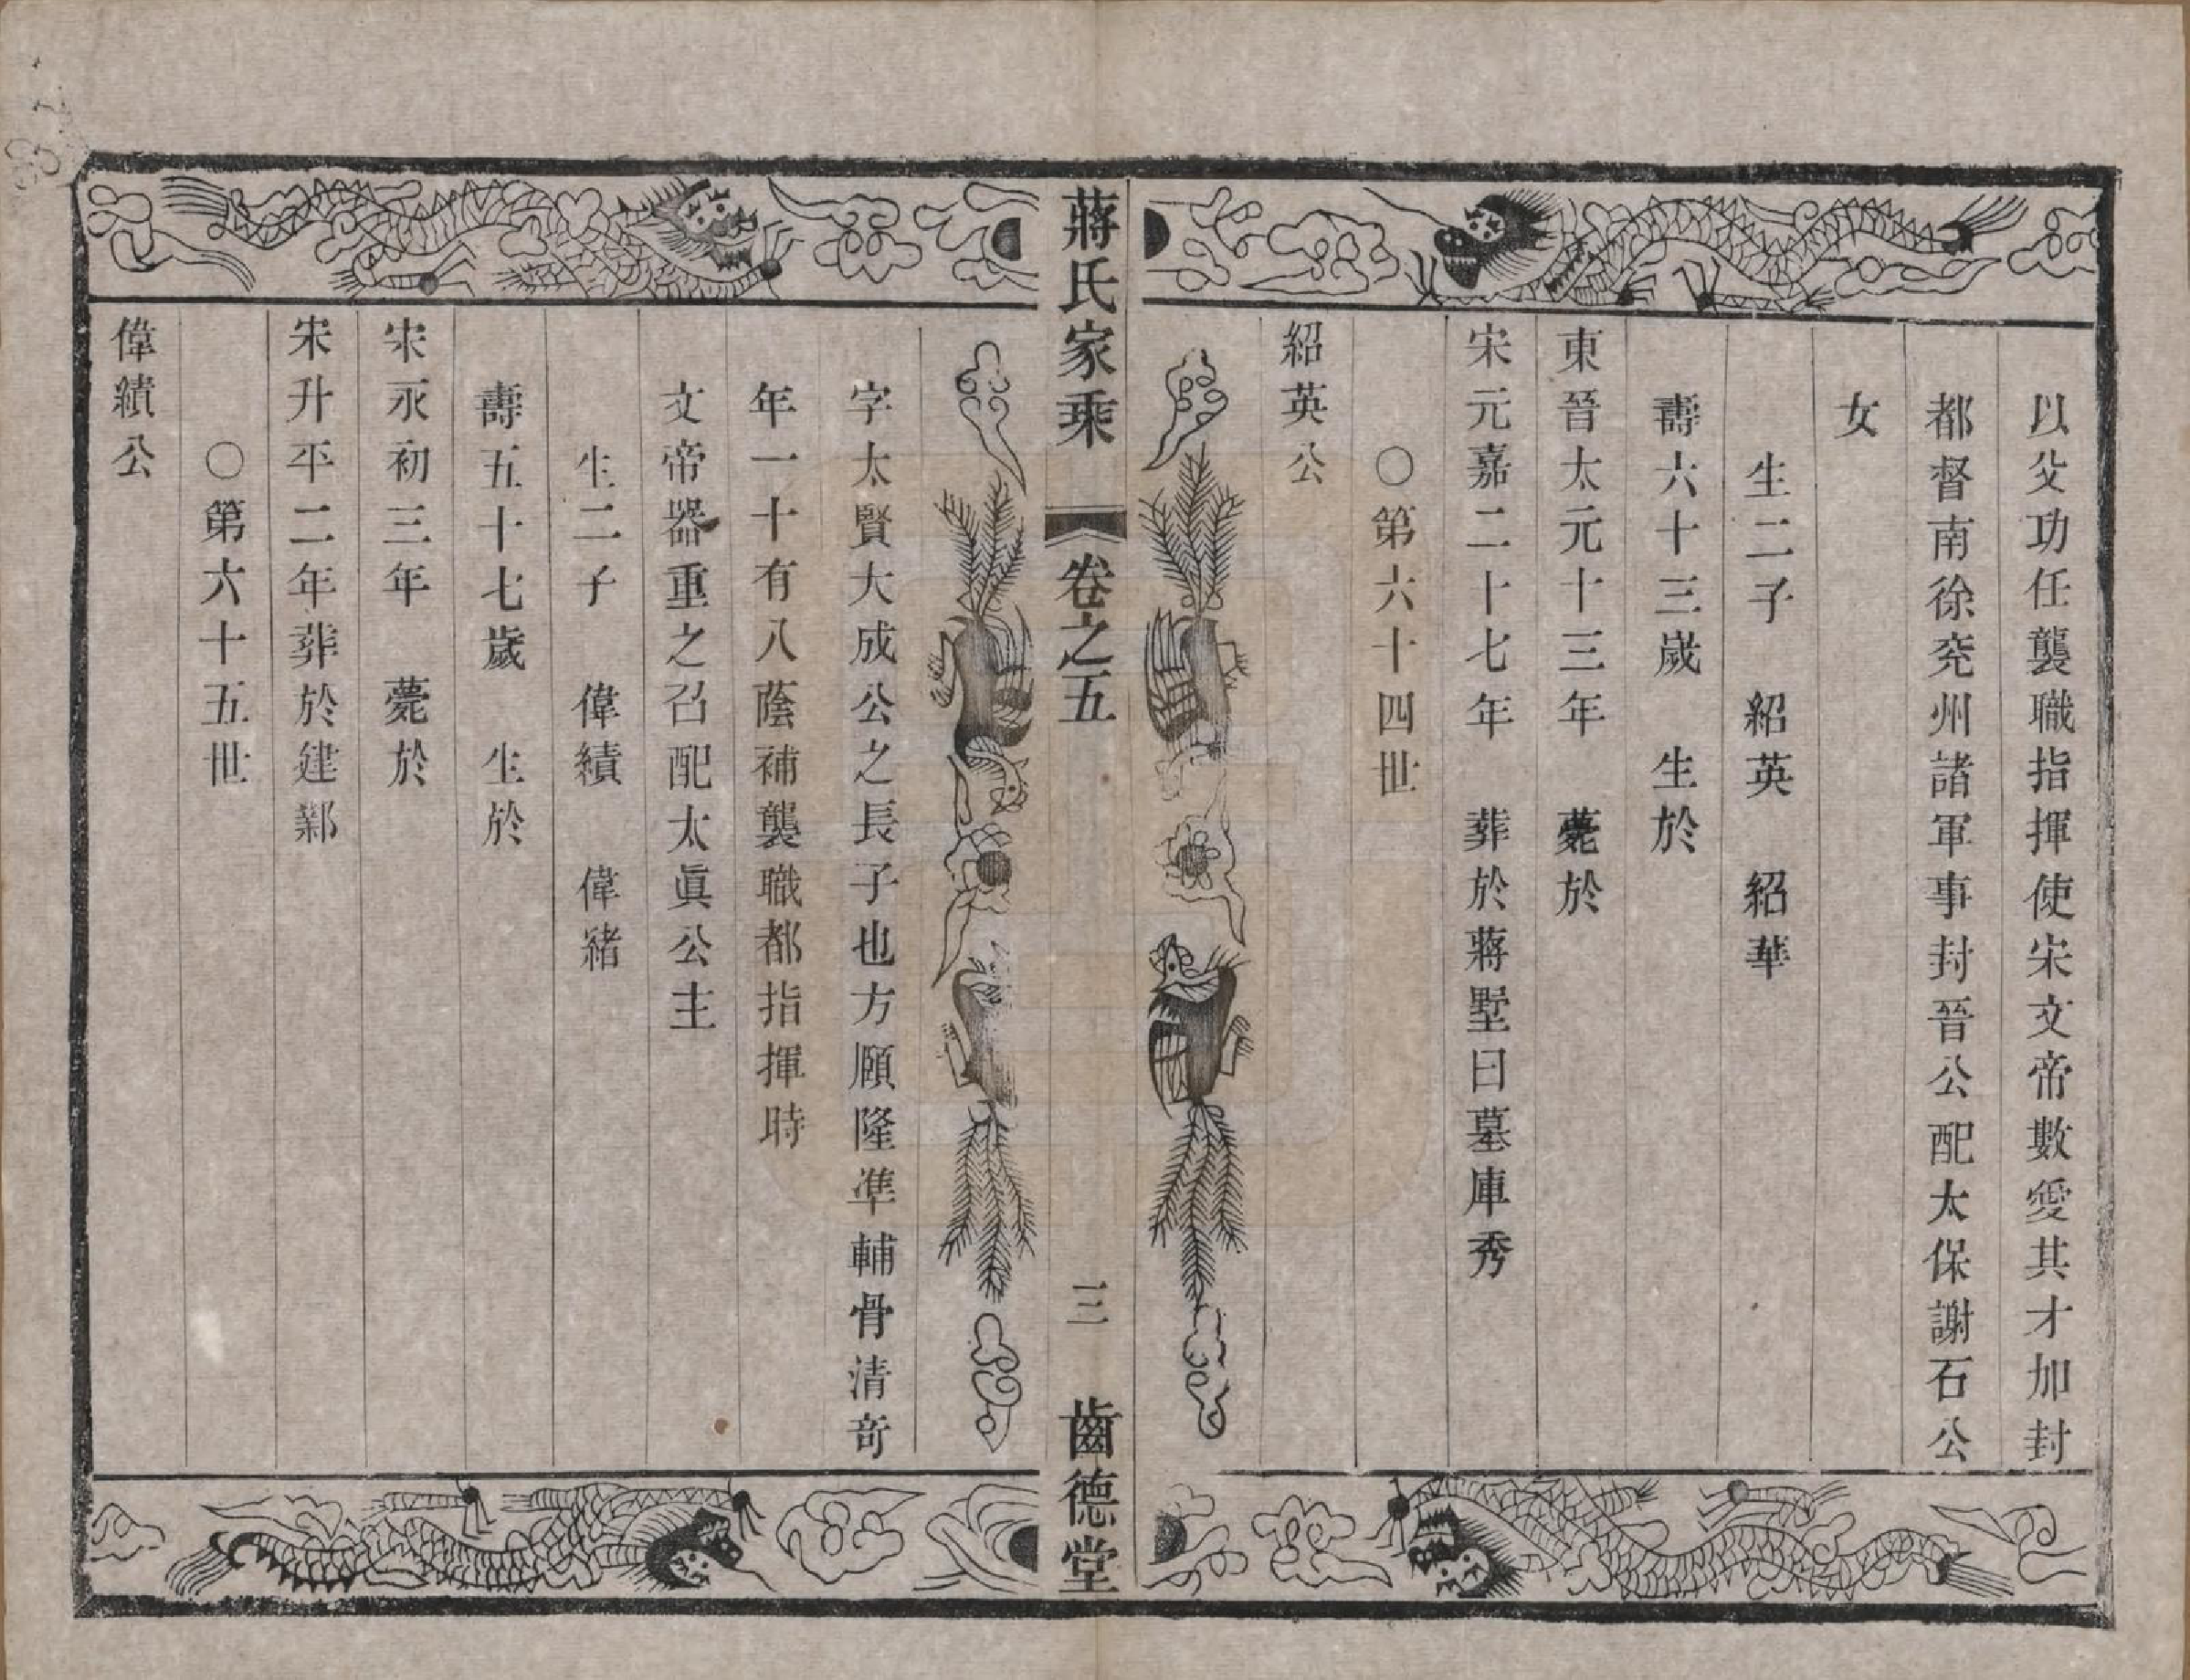 以父功任襲職指揮使宋文帝數愛其才加封
都督南徐兖州諸軍事封晉公配太保謝石公
女
生二子 紹英 紹華
壽六十三歲 生於
東晉太元十三年 薨於
宋元嘉二十七年 葬於蔣墅曰墓庫秀
○第六十四世
紹英公
蔣氏家乘 卷之五 三 齒德堂
字太賢大成公之長子也方願隆準輔骨清奇
年一十有八蔭補襲職都指揮時
文帝器重之召配太眞公主
生二子 偉績 偉緒
壽五十七歲 生於
宋永初三年 薨於
宋升平二年葬於建鄴
○第六十五世
偉績公